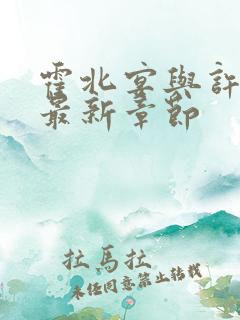 霍北宴與許
最新章節
拉馬拉
未经同意禁止转载